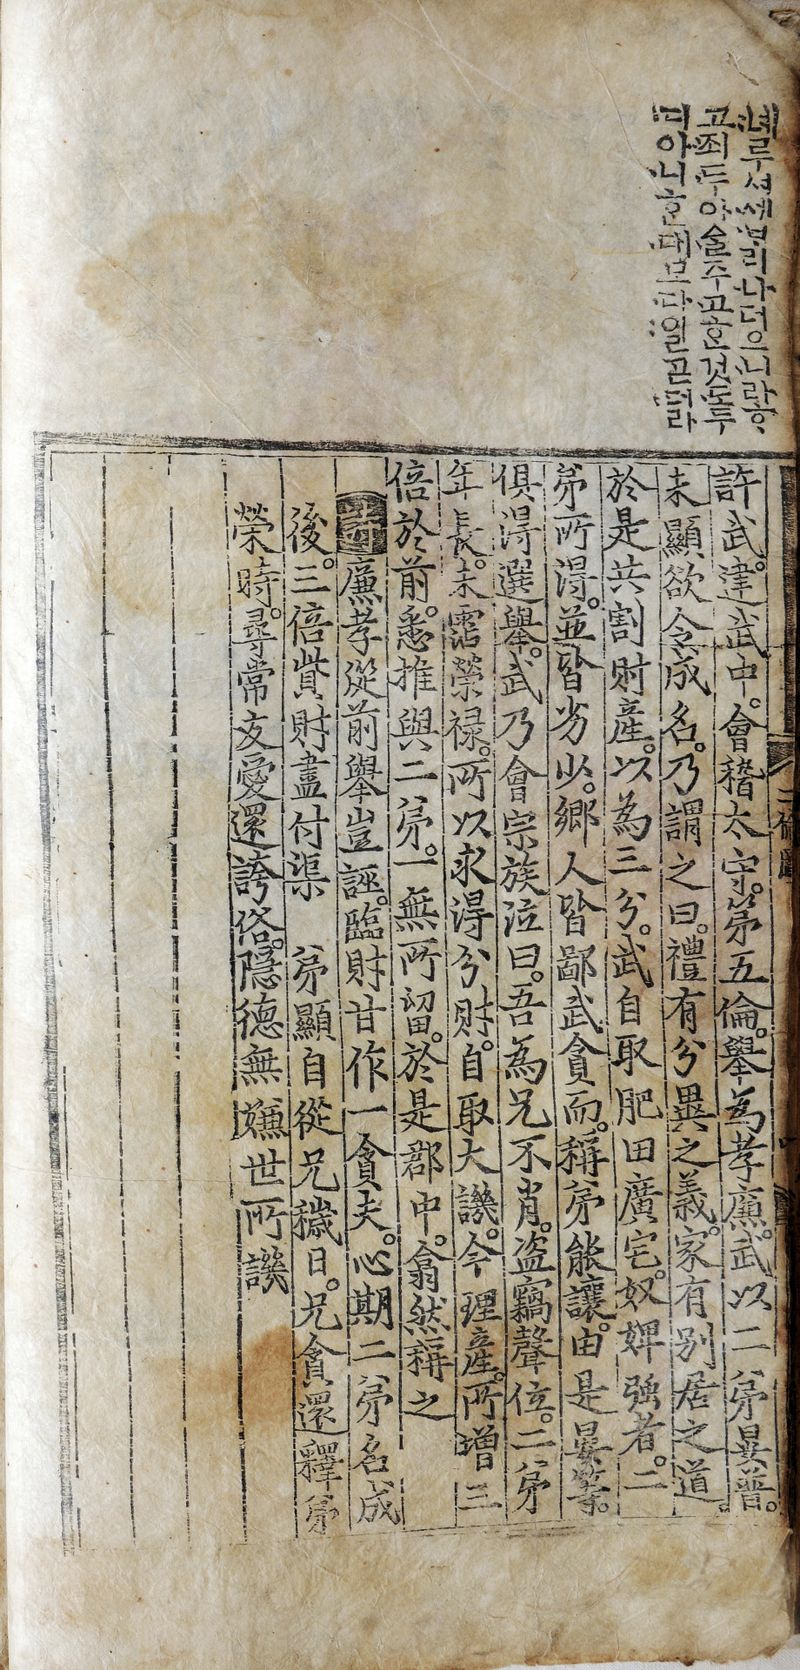 녜루셔세ᄇᆞ리나더으니라ᄒᆞ
고죄두아ᄋᆞᆯ주고ᄒᆞᆫ것도두
디아니ᄒᆞᆫ대모다일ᄏᆞᆮ더라
二倫圖
許武。建武中。會稽太守。第五倫。舉為孝廉。武以二弟晏普。
未顯欲令成名。乃謂之曰。禮有分異之義。家有別居之道。
於是共割財產。以為三分。武自取肥田廣宅。奴婢強者。二
弟所得。並皆劣少。鄉人皆鄙武貪而。稱弟能讓。由是晏等。
俱得選舉。武乃會宗族泣曰。吾為兄不肖。盜竊聲位。二弟
年長。未霑榮祿。所以求得分財。自取大譏。今理產。所增三
倍於前。悉推與二弟。一無所留。於是郡中。翕然稱之
詩 廉孝從前舉豈誣。臨財甘作一貪夫。心期二弟名成
後。三倍貲財盡付渠 弟顯自從兄穢日。兄貪還釋弟
榮時。尋常友愛還誇俗。隱德無嫌世所譏